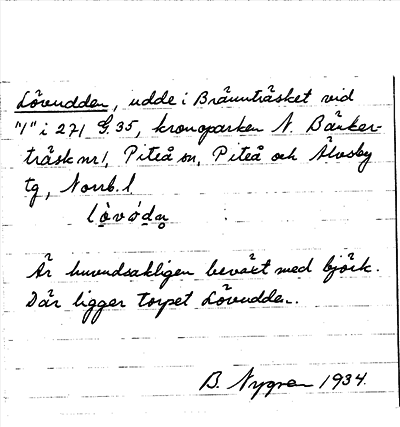 Lövudden, udde i Brännträsket vid
"1" i 271 G.35, kronoparken N. Bänker-
träsk nr 1, Piteå sn, Piteå och Älvsby
tg, Norrb. l.
lövódn̥
Är huvudsakligen beväxt med björk.
Där ligger torpet Lövudden.
B. Nygren 1934.